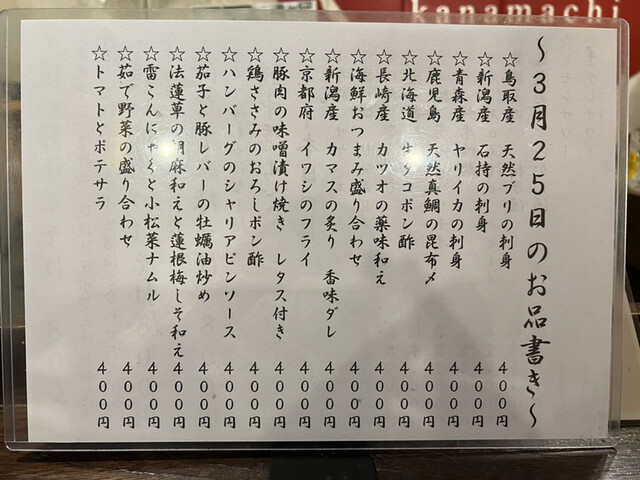 kanamachi
～3月25日のお品書き～
☆鳥取産 天然ブリの刺身 400円
☆新潟産 石持の刺身 400円
☆青森産 ヤリイカの刺身 400円
☆鹿児島 天然真鯛の昆布〆 400円
☆北海道 生タコポン酢 400円
☆長崎産 カツオの薬味和え 400円
☆海鮮おつまみ盛り合わせ 400円
☆新潟産 カマスの炙り 香味ダレ 400円
☆京都府 イワシのフライ 400円
☆豚肉の味噌漬け焼き レタス付き 400円
☆鶏ささみのおろしポン酢 400円
☆ハンバーグのシャリアピンソース 400円
☆茄子と豚レバーの牡蠣油炒め 400円
☆法蓮草の胡麻和えと蓮根梅しそ和え 400円
☆雷こんにゃくと小松菜ナムル 400円
☆茹で野菜の盛り合わせ 400円
☆トマトとポテサラ 400円